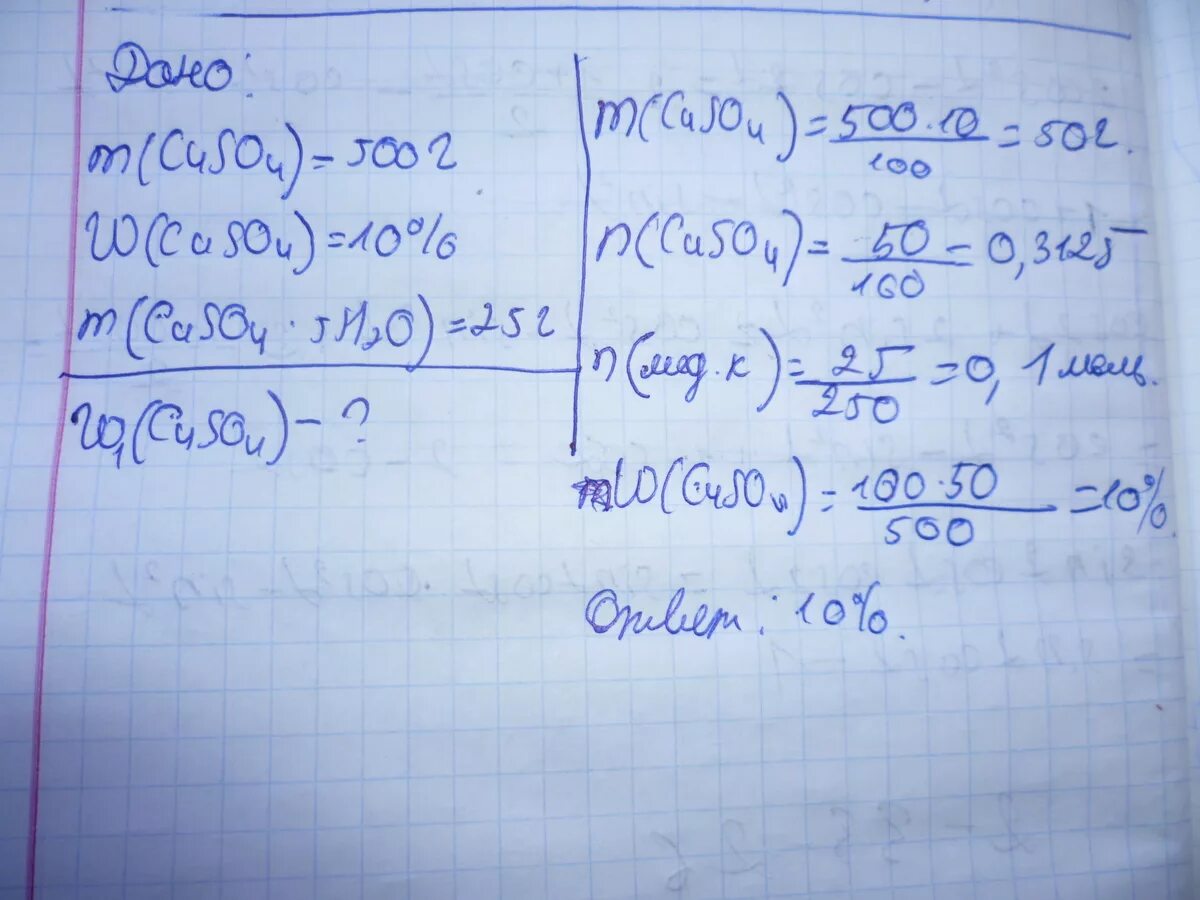 Дано:
m(CuSO₄) = 500г
W(CuSO₄) = 10%
m(CuSO₄ · 5H₂O) = 25г
W₁(CuSO₄) - ?
m(CuSO₄) = 500·10/100 = 50г.
n(CuSO₄) = 50/160 = 0,3125
n(мед. к) = 25/250 = 0,1 моль.
W(CuSO₄) = 100·50/500 = 10%
Ответ: 10%.